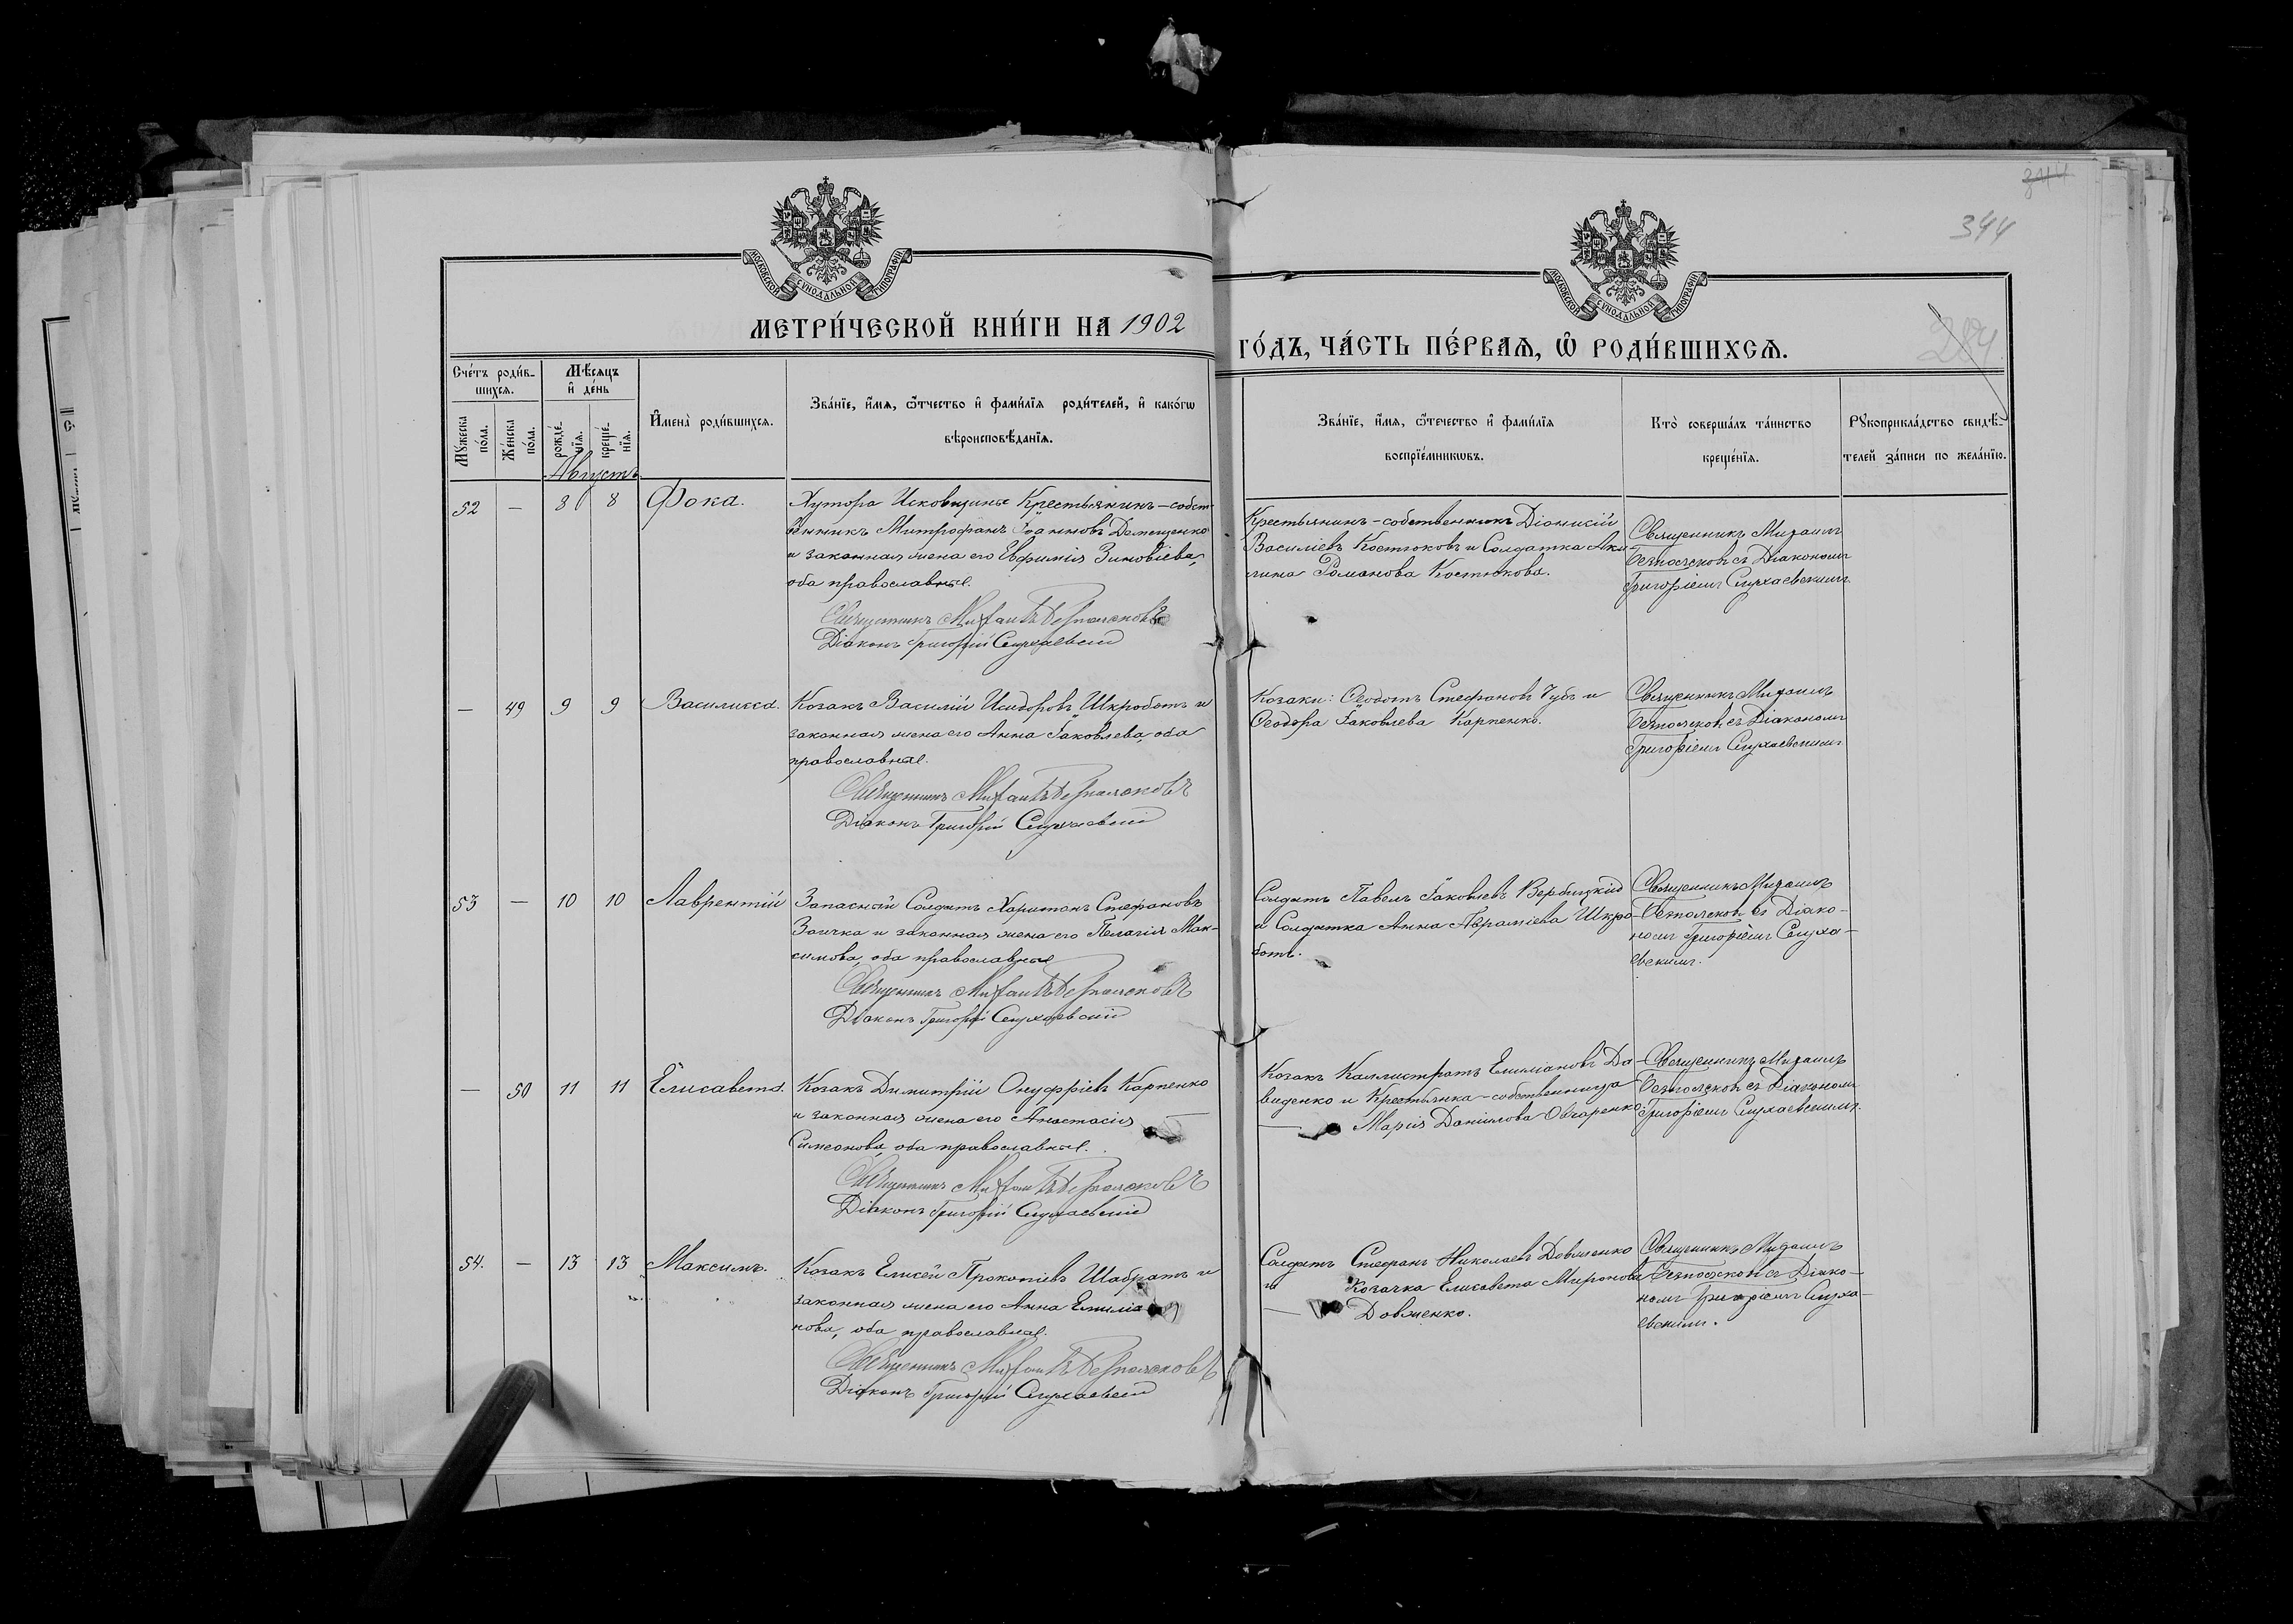 344
344
284
МОСКОВСКОЙ СУНОДАЛЬНОЙ ТИПОГРАФІИ
МОСКОВСКОЙ СУНОДАЛЬНОЙ ТИПОГРАФІИ
МЕТРИ́ЧЕСКОЙ КНИ́ГИ НА 1902
ГО́ДЪ, ЧА́СТЬ ПЕ́РВАѦ, Ѡ҆ РОДИ́ВШИХСѦ.
Сче́тъ роди́в-
шихся.
Мѣ́сяцъ
и҆ де́нь
Мꙋ́жеска
по́ла.
Же́нска
по́ла.
рожде́-
нїя.
креще́-
нїя.
И҆мена̀ роди́вшихся.
Зва́нїе, и҆́мя, ѻ҆́тчество и҆ фами́лїя роди́телей, и҆ како́гѡ
вѣроисповѣ́данїя.
Зва́нїе, и҆́мя, ѻ҆́течество и҆ фами́лїя
воспрїе́мникѡвъ.
Кто̀ соверша́лъ та́инство
креще́нїя.
Рꙋкоприкла́дство свидѣ́-
телей за́писи по жела́нїю.
Августъ
52 — 8 8 Фока.
Хутора Исковщины Крестьянинъ-собст-
венникъ Митрофанъ Іоанновъ Домещенко
и законная жена его Евфимія Зиновіева,
оба православные.
Священникъ Михаилъ Безпалсковъ
Діаконъ Григорій Слухаевскій
Крестьянинъ-собственникъ Діонисій
Василіевъ Костюковъ и Солдатка Аки-
лина Романова Костюкова.
Священникъ Михаилъ
съ Діакономъ
Григоріемъ Слухаевскимъ.
— 49 9 9 Василисса.
Козакъ Василій Исидоровъ Шкроботъ и
законная жена его Анна Іаковлева, оба
православные.
Священникъ Михаилъ
Діаконъ Григорій Слухаевскій
Козаки: Ѳеодотъ Стефановъ Губъ и
Ѳеодора Іаковлева Карпенко.
Священникъ Михаилъ
съ Діакономъ
Григоріемъ Слухаевскимъ
53 — 10 10 Лаврентій
Запасный Солдатъ Харитонъ Стефановъ
Заичка и законная жена его Пелагія Мак-
симова, оба православные
Священникъ Михаилъ
Діаконъ Григорій Слухаевскій
Солдатъ Павелъ Іаковлевъ Вербицкій
и Солдатка Анна Авраміева Шкро-
ботъ.
Священникъ Михаилъ
съ Діако-
номъ Григоріемъ Слуха-
евскимъ.
— 50 11 11 Елисавета.
Козакъ Димитрій Онуфріевъ Карпенко
и законная жена его Анастасія
Симеонова, оба православные.
Священникъ Михаилъ
Діаконъ Григорій Слухаевскій
Козакъ Каллистратъ Емиліановъ Да-
виденко и Крестьянка-собственница
Марія Даніилова Овчаренко
Священникъ Михаилъ
съ Діакономъ
Григоріемъ Слухаевскимъ.
54. — 13 13 Максимъ.
Козакъ Елисей Прокопіевъ Шабратъ и
законная жена его Анна Емиліа-
нова, оба православные.
Священникъ Михаилъ
Діаконъ Григорій Слухаевскій
Солдатъ Стефанъ Николаевъ Довженко
и Козачка Елисавета Миронова
Довженко.
Священникъ Михаилъ
съ Діако-
номъ Григоріемъ Слуха-
евскимъ.